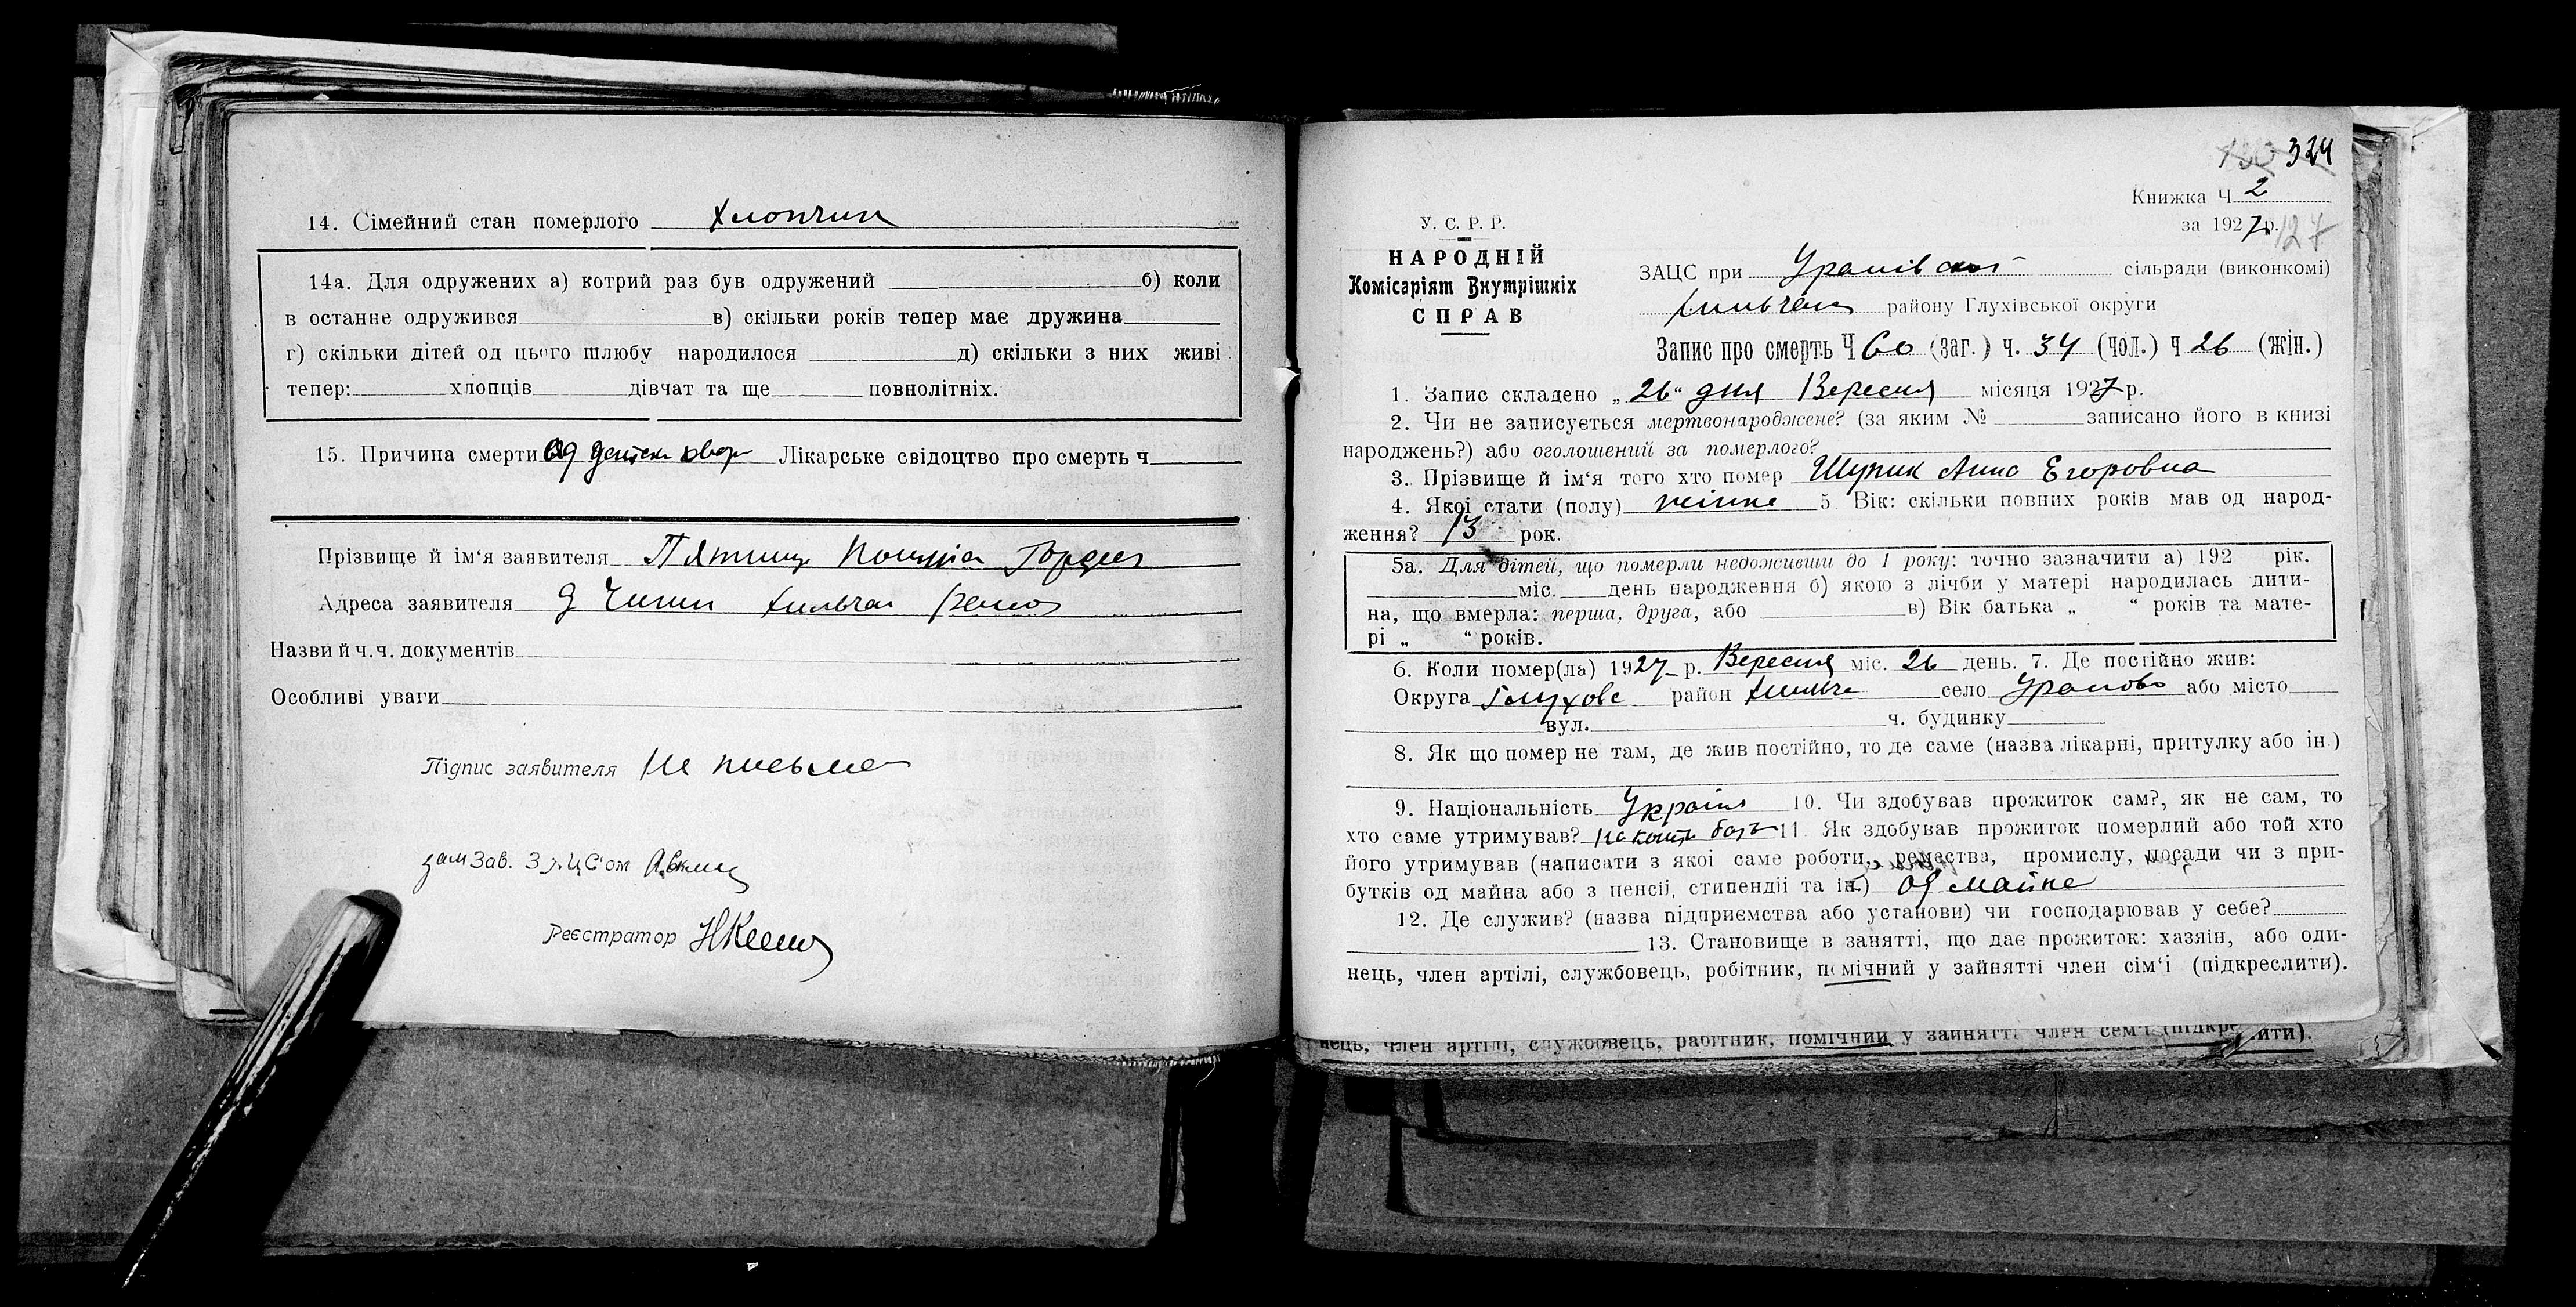 14. Сімейний стан померлого Хлопчик
14а. Для одружених а) котрий раз був одружений б) коли
в останнє одружився в) скільки років тепер має дружина
г) скільки дітей од цього шлюбу народилося д) скільки з них живі
тепер: хлопців дівчат та ще повнолітніх.
15. Причина смерти Од Лікарське свідоцтво про смерть ч
Прізвище й ім‘я заявителя
Адреса заявителя
Назви й ч.ч. документів
Особливі уваги
Підпис заявителя Не письме
зам Зав. ЗАЦС‘ом
Реєстратор
130 324
Книжка Ч 2
за 1927 р. 127
У. С. Р. Р.
НАРОДНІЙ
Комісаріят Внутрішніх
СПРАВ
ЗАЦС при сільради (виконкомі)
району Глухівської округи
Запис про смерть Ч 60 (заг.) ч. 34 (чол.) ч 26 (жін.)
1. Запис складено „26“ дня Вересня місяця 1927 р.
2. Чи не записується мертвонароджене? (за яким № записано його в книзі
народжень?) або оголошений за померлого?
3. Прізвище й ім‘я того хто помер Шупик Анна Егоровна
4. Якої стати (полу) жіноче 5 Вік: скільки повних років мав од народ-
ження? 13 рок.
5а. Для дітей, що померли недоживши до 1 року: точно зазначити а) 192 рік.
міс. день народження б) якою з лічби у матері народилась дити-
на, що вмерла: перша, друга, або в) Вік батька „ “ років та мате-
рі „ “ років.
6. Коли помер(ла) 1927 р. Вересня міс. 26 день. 7. Де постійно жив:
Округа Глухове район село Уралово або місто
вул. ч. будинку
8. Як що помер не там, де жив постійно, то де саме (назва лікарні, притулку або ін.)
9. Національність 10. Чи здобував прожиток сам?, як не сам, то
хто саме утримував? 11. Як здобував прожиток померлий або той хто
його утримував (написати з якої саме роботи, ремества, промислу, посади чи з при-
бутків од майна або з пенсії, стипендії та ін.) Од майна
12. Де служив? (назва підприємства або установи) чи господарював у себе?
13. Становище в занятті, що дає прожиток: хазяін, або оди-
нець, член артілі, службовець, робітник, помічний у зайнятті член сім‘і (підкреслити).
нець, член артілі, службовець, рабітник, помічний у зайнятті член сем‘ї (підкреслити).